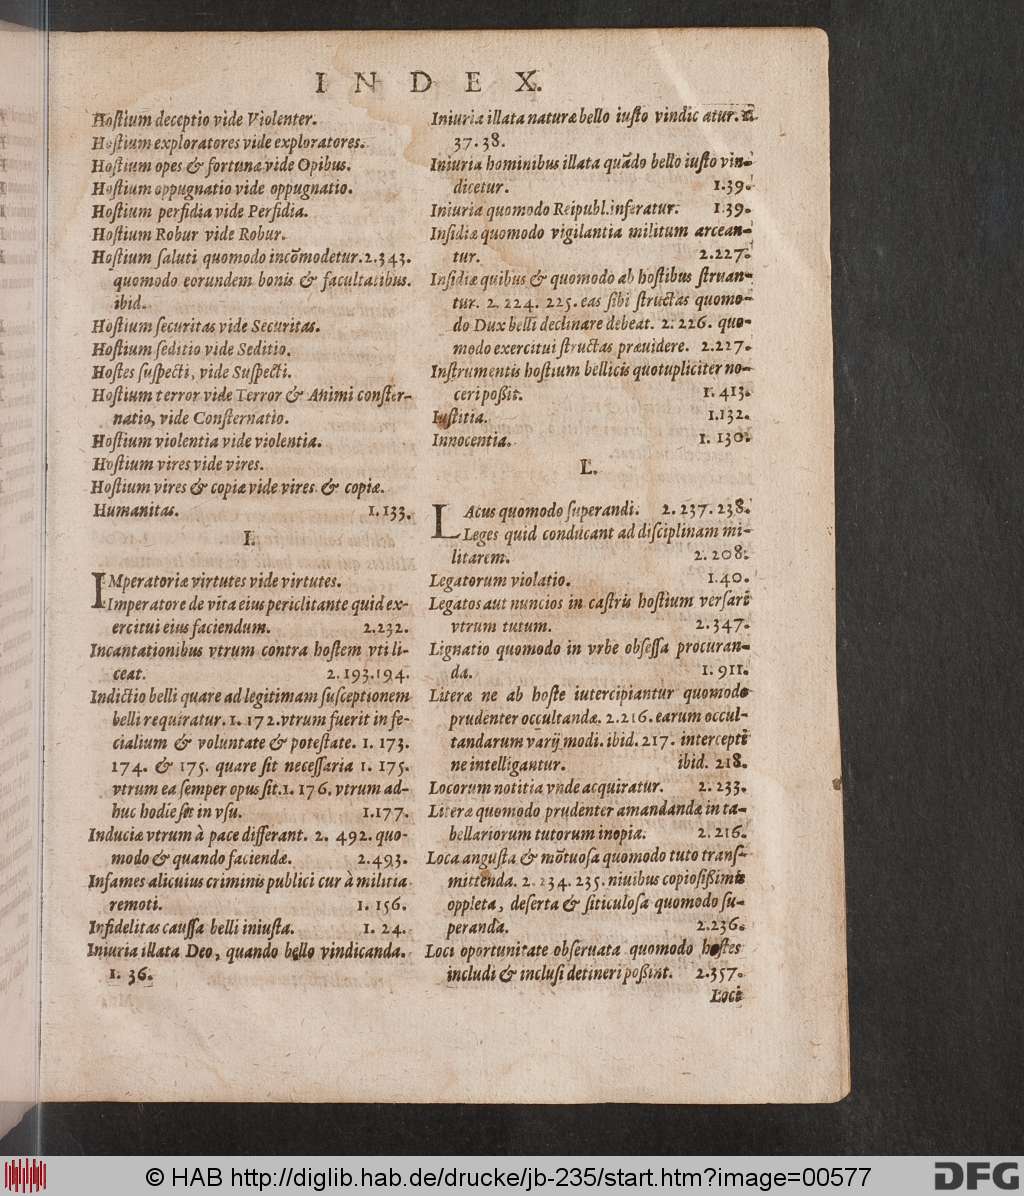 INDEX.
Hoſtium deceptio vide Violenter.
Hoſtium exploratores vide exploratores.
Hoſtium opes & fortunæ vide Opibus.
Hoſtium oppugnatio vide oppugnatio.
Hoſtium perfidia vide Perfidia.
Hoſtium Robur vide Robur.
Hoſtium ſaluti quomodo incõmodetur. 2.343.
quomodo eorundem bonis & facultatibus.
ibid.
Hoſtium ſecuritas vide Securitas.
Hoſtium ſeditio vide Seditio.
Hoſtes ſuſpecti, vide Suſpecti.
Hoſtium terror vide Terror & Animi conſter-
natio, vide Conſternatio.
Hoſtium violentia vide violentia.
Hoſtium vires vide vires.
Hoſtium vires & copiæ vide vires & copiæ.
Humanitas. 1.133.
I.
IMperatoriæ virtutes vide virtutes.
Imperatore de vita eius periclitante quid ex-
ercitui eius faciendum. 2.232.
Incantationibus vtrum contra hoſtem vti li-
ceat. 2.193.194.
Indictio belli quare ad legitimam ſuſceptionem
belli requiratur. 1. 172. vtrum fuerit in fe-
cialium & voluntate & poteſtate. 1. 173.
174. & 175. quare ſit neceſſaria 1. 175.
vtrum ea ſemper opus ſit. 1. 176. vtrum ad-
huc hodie ſit in vſu. 1.177.
Induciæ vtrum à pace differant. 2. 492. quo-
modo & quando faciendæ. 2.493.
Infames alicuius criminis publici cur à militia
remoti. 1. 156.
Infidelitas cauſſa belli iniuſta. 1. 24.
Iniuria illata Deo, quando bello vindicanda.
1. 36.
Iniuria illata naturæ bello iuſto vindicatur. 1.
37.38.
Iniuria hominibus illata quãdo bello iuſto vin-
dicetur. 1.39.
Iniuria quomodo Reipubl. inferatur. 1.39.
Inſidiæ quomodo vigilantia militum arcean-
tur. 2.227.
Inſidiæ quibus & quomodo ab hoſtibus ſtruan-
tur. 2. 224. 225. eas ſibi ſtructas quomo-
do Dux belli declinare debeat. 2. 226. quo-
modo exercitui ſtructas præuidere. 2.227.
Inſtrumentis hoſtium bellicis quotupliciter no-
ceri poßit. 1. 413.
Iuſtitia. 1.132.
Innocentia. 1. 130.
L.
LAcus quomodo ſuperandi. 2. 237. 238.
Leges quid conducant ad diſciplinam mi-
litarem. 2. 208.
Legatorum violatio. 1.40.
Legatos aut nuncios in caſtris hoſtium verſari
vtrum tutum. 2.347.
Lignatio quomodo in vrbe obſeſſa procuran-
da. 1. 911.
Literæ ne ab hoſte iutercipiantur quomodo
prudenter occultandæ. 2.216. earum occul-
tandarum varij modi. ibid. 217. intercepti
ne intelligantur. ibid. 218.
Locorum notitia vnde acquiratur. 2. 233.
Literæ quomodo prudenter amandandæ in ta-
bellariorum tutorum inopia. 2.216.
Loca anguſta & mõtuoſa quomodo tuto tranſ-
mittenda. 2. 234. 235. niuibus copioſißimis
oppleta, deſerta & ſiticuloſa quomodo ſu-
peranda. 2.236.
Loci oportunitate obſeruata quomodo hoſtes
includi & incluſi detineri poßint. 2.357.
Loci
© HAB http://diglib.hab.de/drucke/jb-235/start.htm?image=00577
DFG